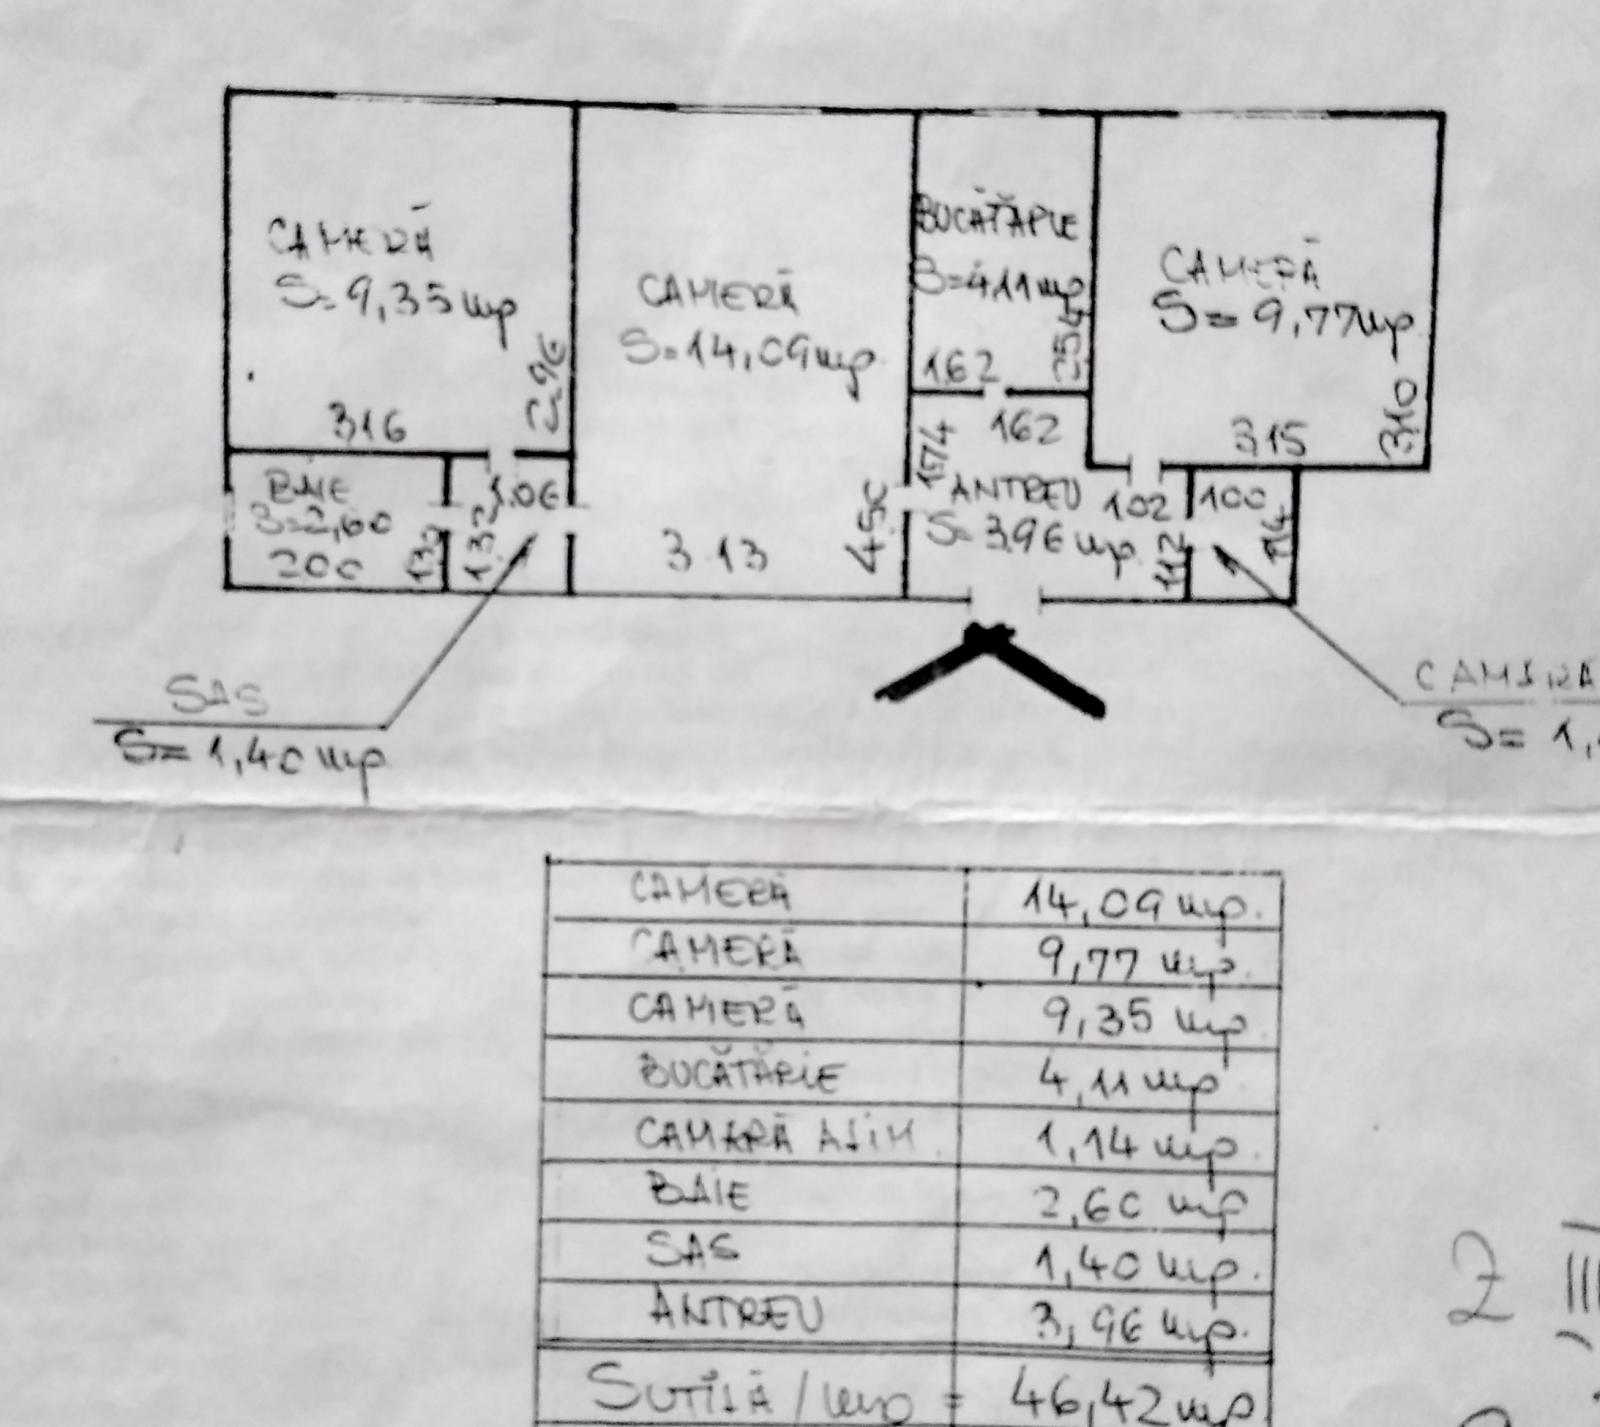 CAMERĂ
S=9,35mp
2.96
316
CAMERĂ
S=14,09mp
450
3.13
BUCĂTĂRIE
S=4,11mp
254
162
CAMERĂ
S=9,77mp
310
315
BAIE
S=2,60
200
130
1.06
132
174
162
ANTREU
S=3,96mp
102
112
100
114
SAS
S=1,40mp
CAMARA
S= 1,
CAMERĂ 14,09 mp.
CAMERĂ 9,77 mp.
CAMERĂ 9,35 mp
BUCĂTĂRIE 4,11 mp
CAMARĂ ALIM. 1,14 mp.
BAIE 2,60 mp
SAS 1,40 mp.
ANTREU 3,96 mp.
SUTILĂ/mp = 46,42 mp
2 III